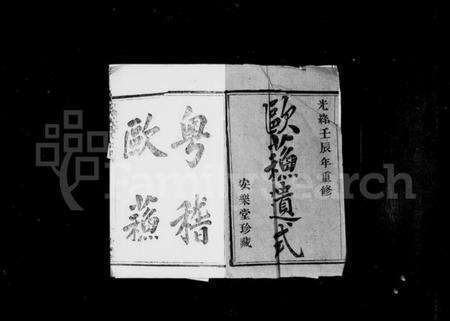 光緒壬辰年重修
歐蘓遺式
安樂堂珍藏
粤稽
歐蘓
FamilySearch